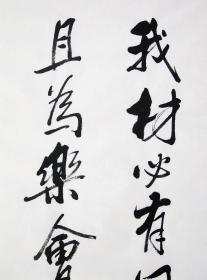 我材必有
且為樂會